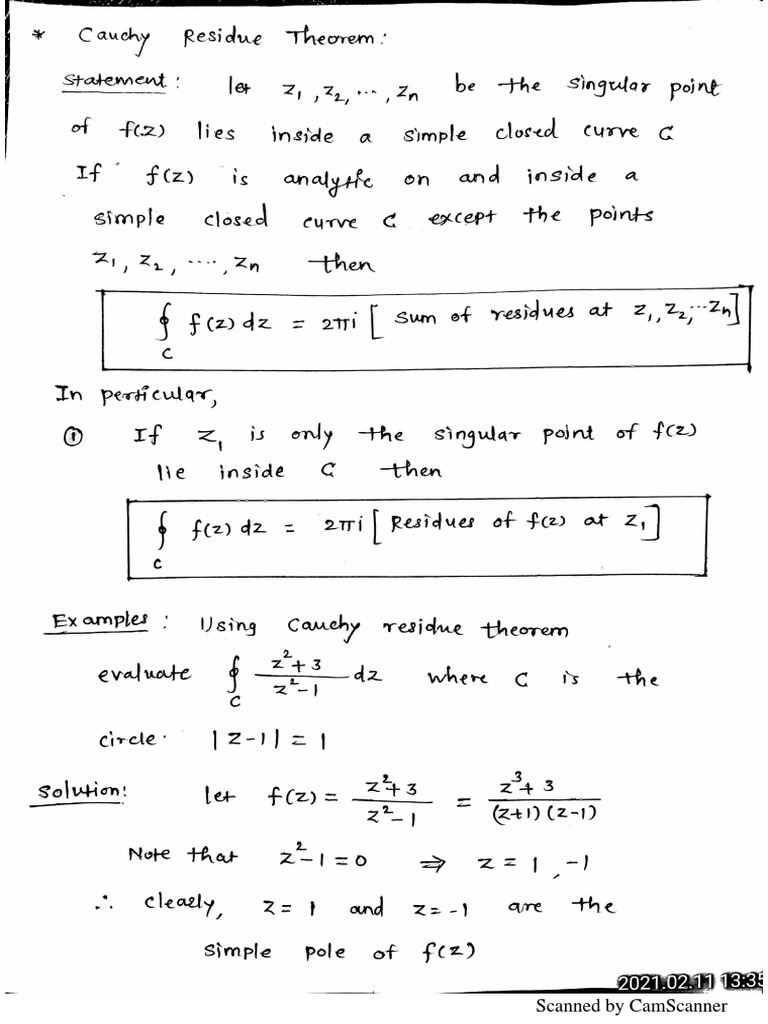 * Cauchy Residue Theorem:
Statement: let z₁, z₂, ..., zₙ be the singular point
of f(z) lies inside a simple closed curve C
If f(z) is analytic on and inside a
simple closed curve C except the points
z₁, z₂, ...., zₙ then
∮_C f(z) dz = 2πi [ Sum of residues at z₁, z₂, ... zₙ]
In perticular,
① If z₁ is only the singular point of f(z)
lie inside C then
∮_C f(z) dz = 2πi [ Residues of f(z) at z₁ ]
Examples: Using Cauchy residue theorem
evaluate ∮_C (z²+3)/(z²-1) dz where C is the
circle. |z-1| = 1
Solution: let f(z) = (z²+3)/(z²-1) = (z³+3)/((z+1)(z-1))
Note that z²-1=0 ⇒ z = 1, -1
∴ clearly, z = 1 and z = -1 are the
simple pole of f(z)
2021.02.11 13:35
Scanned by CamScanner